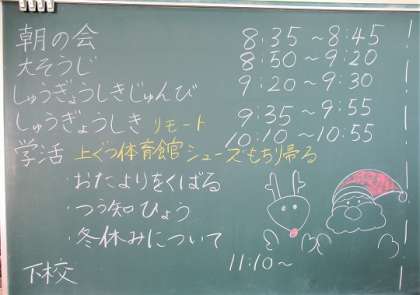 朝の会 8:35～8:45
大そうじ 8:50～9:20
しゅうぎょうしきじゅんび 9:20～9:30
しゅうぎょうしき リモート 9:35～9:55
学活 上ぐつ体育館シューズもち帰る 10:10～10:55
・おたよりをくばる
・つう知ひょう
・冬休みについて
下校 11:10～